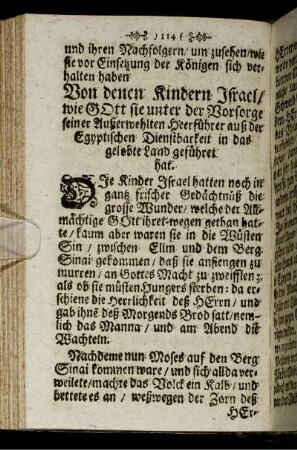 )114(
und ihren Nachfolgern / um zusehen / wie
sie vor Einsetzung der Königen sich ver-
halten haben
Von denen Kindern Israel /
wie GOtt sie unter der Vorsorge
seiner Außerwehlten Heerführer auß der
Egyptischen Dienstbarkeit in das
gelobte Land geführet
hat.
DIe Kinder Israel hatten noch in
gantz frischer Gedächtnüß die
grosse Wunder / welche der All-
mächtige GOtt ihret-wegen gethan hat-
te / kaum aber waren sie in die Wüsten
Sin / zwischen Elim und dem Berg
Sinai gekommen / daß sie anfiengen zu
murren / an Gottes Macht zu zweifflen / 
als ob sie müsten Hungers sterben: da er-
schiene die Herrlichkeit deß HErrn / und
gab ihnē deß Morgends Brod satt / nem-
lich das Manna / und am Abend die
Wachteln.
Nachdeme nun Moses auf den Berg
Sinai kommen ware / und sich allda ver-
weilete / machte das Volck ein Kalb / und
bettete es an / weßwegen der Zorn deß
HEr-